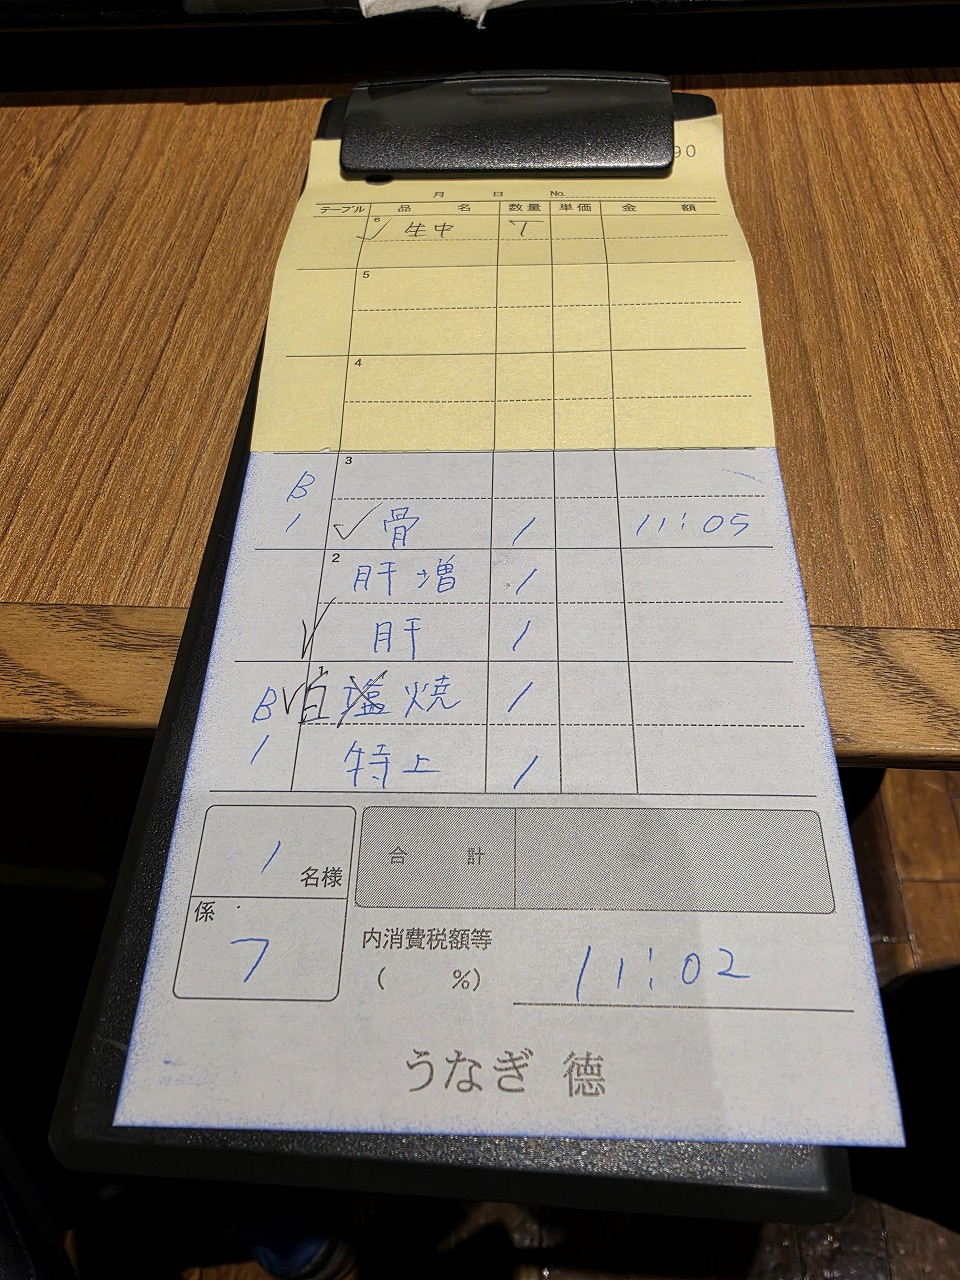 90
月 日 No.
テーブル 品 名 数量 単価 金 額
6 生中 T
5
4
B 3
1 骨 1 11:05
2 肝増 1
肝 1
B 1 白 塩焼 1
1 特上 1
1 名様 合 計
係 7
内消費税額等
( %) 11:02
うなぎ 德